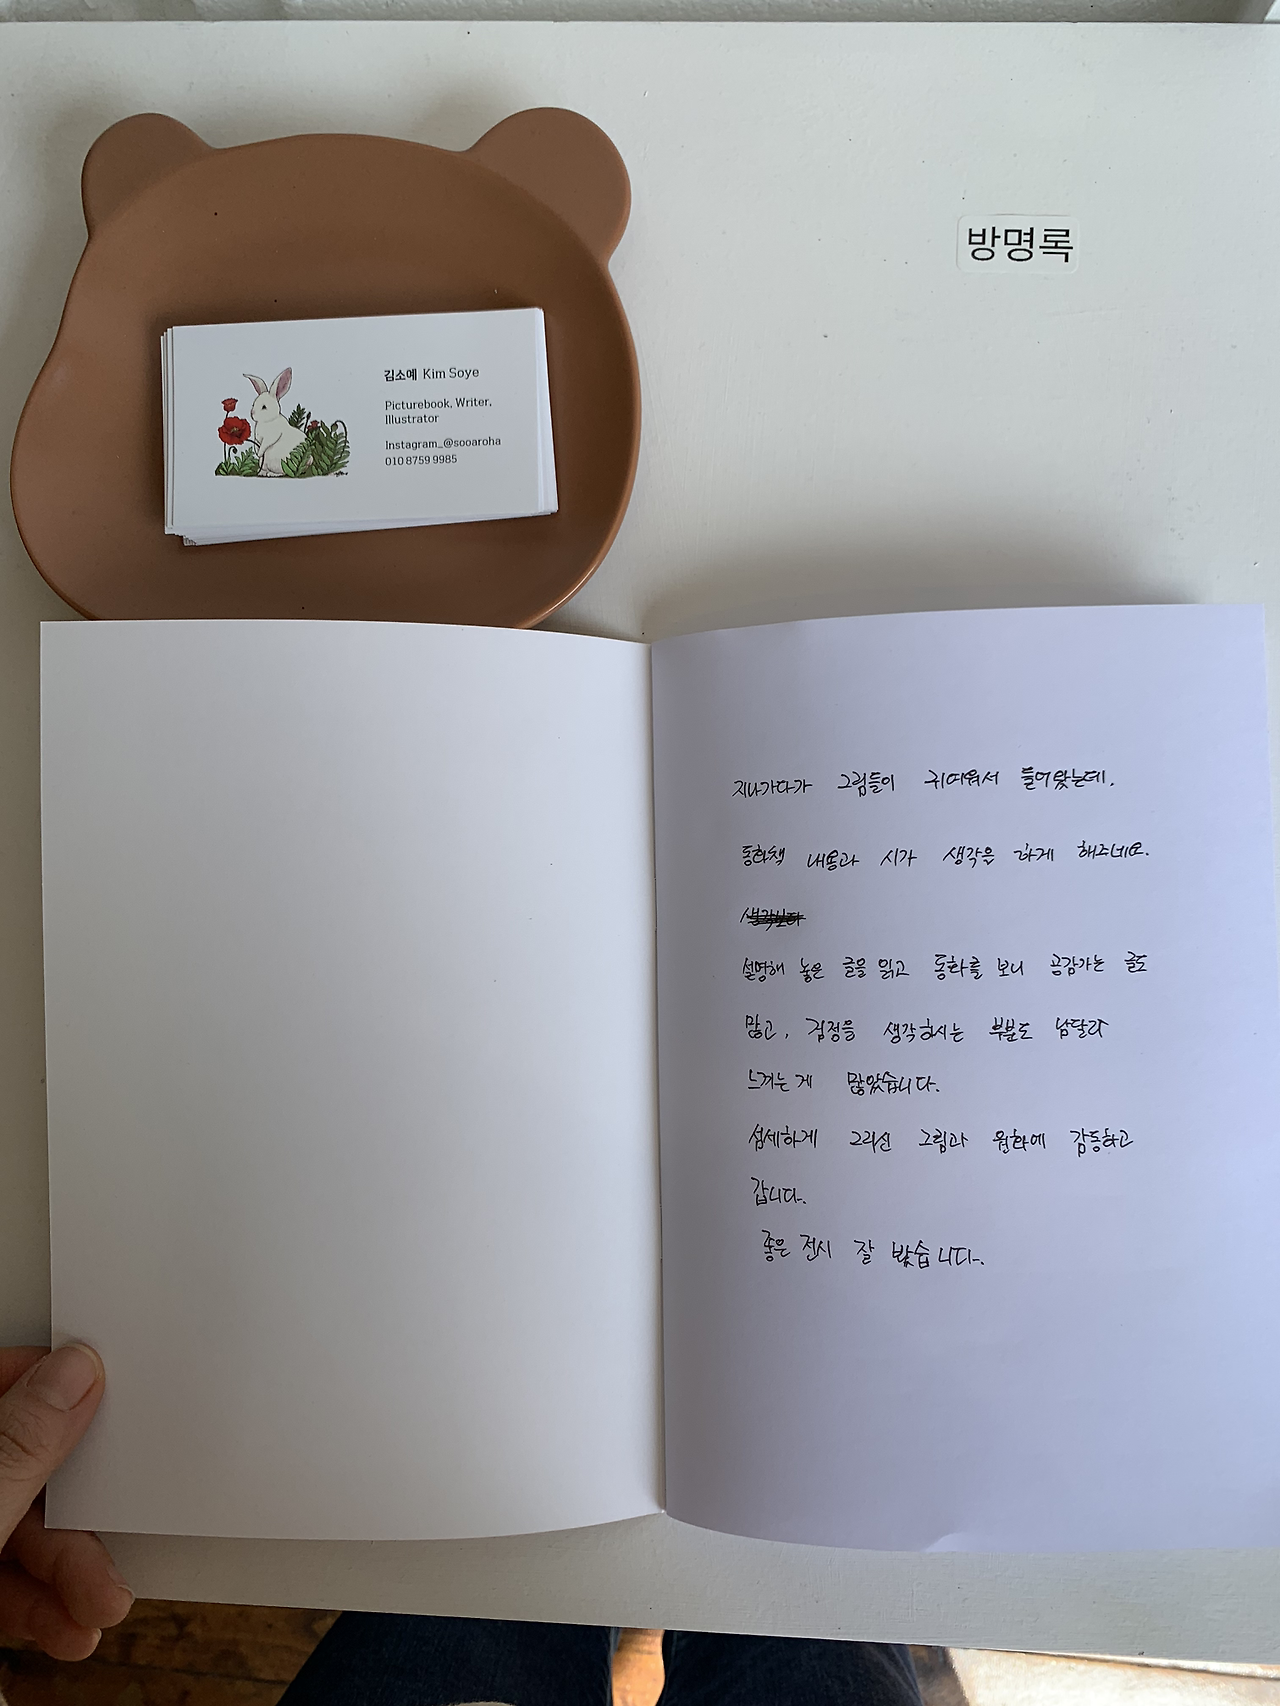 방명록
김소예 Kim Soye
Picturebook, Writer,
Illustrator
Instagram_@sooaroha
010 8759 9985
지나가다가 그림들이 귀여워서 들어왔는데.
동화책 내용과 시가 생각을 하게 해주네요.
설명해 놓은 글을 읽고 동화를 보니 공감가는 글도
많고, 검정을 생각하시는 부분도 남달라
느끼는게 많았습니다.
섬세하게 그리신 그림과 원화에 감동하고
갑니다.
좋은 전시 잘 봤습니다.